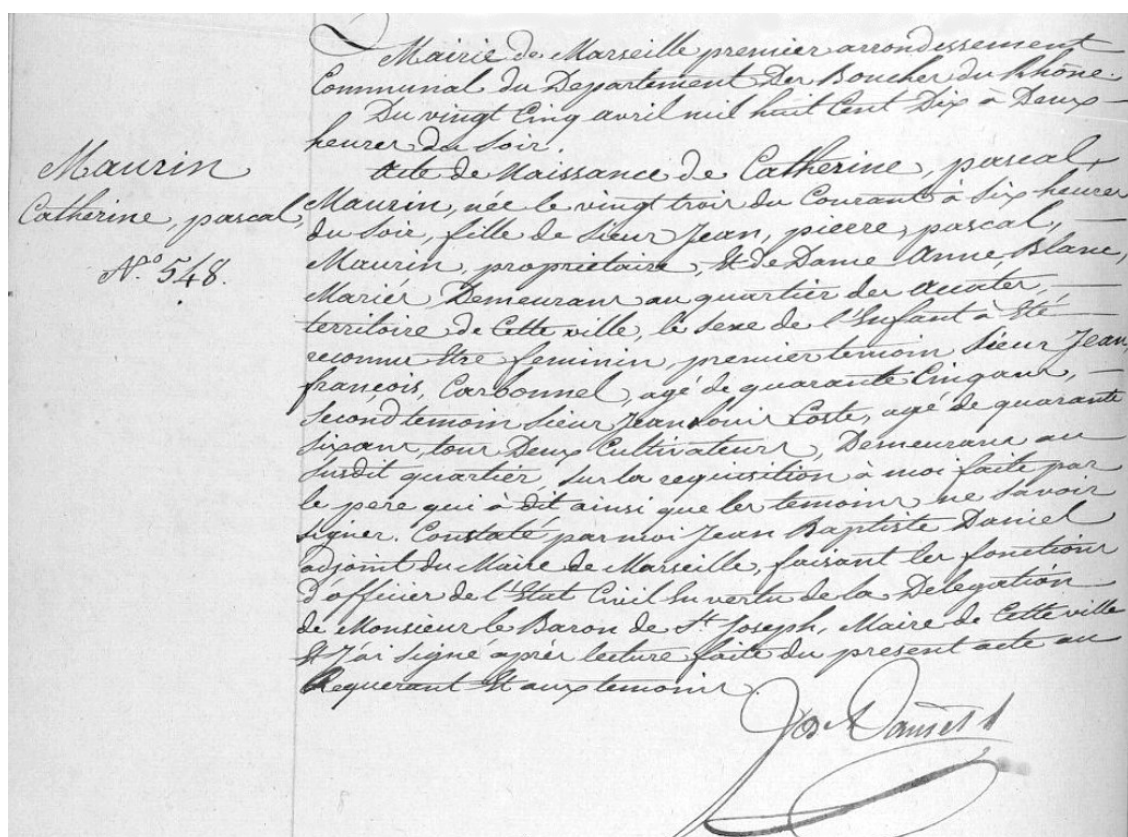 Maurin
Catherine, pascal,
N.º 548.
Mairie de Marseille premier arrondissement
Communal du Departement Des Bouches du Rhône.
Du vingt Cinq avril mil huit Cent Dix à Deux
heures du Soir.
Acte de Naissance de Catherine, pascal,
Maurin, née le vingt trois du Courant à Six heures
du Soir, fille de Sieur Jean, pierre, pascal,
Maurin, propriétaire, Et de Dame Anne, Blanc,
Mariés, Demeurans au quartier des
territoire de Cette ville, le sexe de l'Enfant à Eté
reconnu Etre feminin, premier temoin Sieur Jean,
françois, Carbonnel, agé de quarante Cinq ans,
Second temoin Sieur Jean Louis Coste, agé de quarante
Six ans, tous Deux Cultivateurs, Demeurans au
Susdit quartier, Sur la requisition à moi faite par
le pere qui à dit ainsi que les temoins ne Savoir
Signer. Constaté par moi Jean Baptiste Daniel
adjoint du Maire de Marseille, faisant les fonctions
d'officier de l'Etat Civil En vertu de la Delegation
de Monsieur le Baron de St. Joseph, Maire de Cette ville
Et J'ai Signé après lecture faite du present acte au
Requerant Et aux temoins.